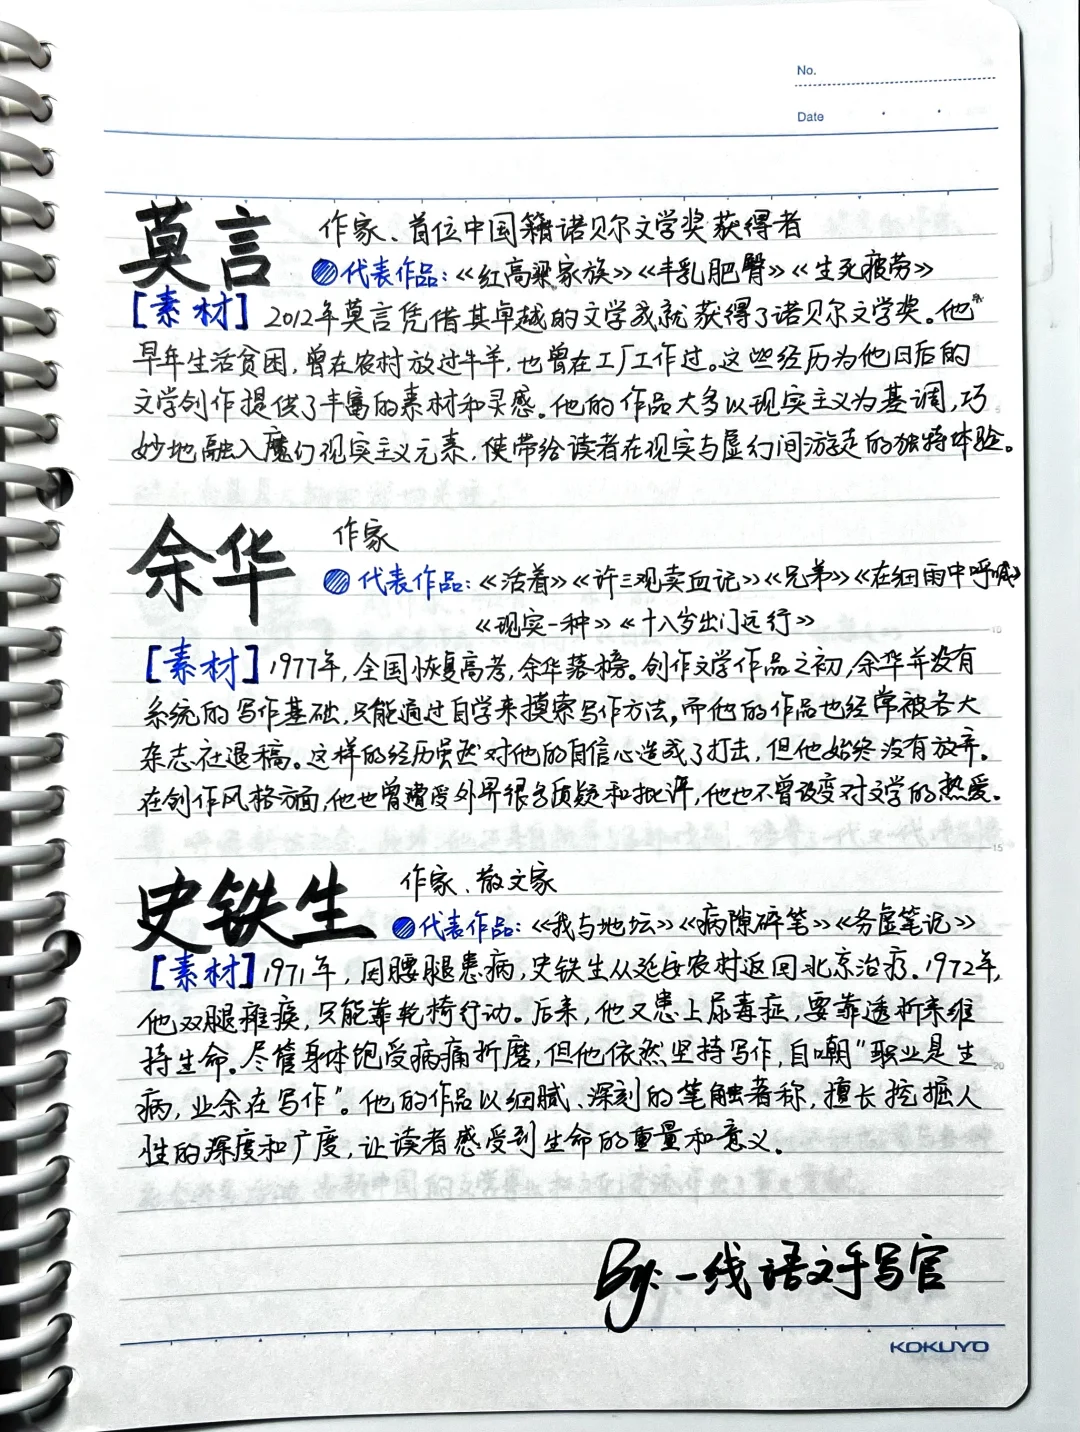 No.
Date
莫言 作家、首位中国籍诺贝尔文学奖获得者
代表作品:《红高粱家族》《丰乳肥臀》《生死疲劳》
[素材] 2012年莫言凭借其卓越的文学成就获得了诺贝尔文学奖。他
早年生活贫困,曾在农村放过牛羊,也曾在工厂工作过。这些经历为他日后的
文学创作提供了丰富的素材和灵感。他的作品大多以现实主义为基调,巧
妙地融入魔幻现实主义元素,使带给读者在现实与虚幻间游走的独特体验。
余华 作家
代表作品:《活着》《许三观卖血记》《兄弟》《在细雨中呼喊》
《现实一种》《十八岁出门远行》
[素材] 1977年,全国恢复高考,余华落榜。创作文学作品之初,余华并没有
系统的写作基础,只能通过自学来摸索写作方法,而他的作品也经常被各大
杂志社退稿。这样的经历虽然对他的自信心造成了打击,但他始终没有放弃。
在创作风格方面,他也曾遭受外界很多质疑和批评,他也不曾改变对文学的热爱。
史铁生 作家、散文家
代表作品:《我与地坛》《病隙碎笔》《务虚笔记》
[素材] 1971年,因腰腿患病,史铁生从延安农村返回北京治疗。1972年,
他双腿瘫痪,只能靠轮椅行动。后来,他又患上尿毒症,要靠透析来维
持生命。尽管身体饱受病痛折磨,但他依然坚持写作,自嘲“职业是生
病,业余在写作”。他的作品以细腻、深刻的笔触著称,擅长挖掘人
性的深度和广度,让读者感受到生命的重量和意义。
By:一线语文手写官
KOKUYO